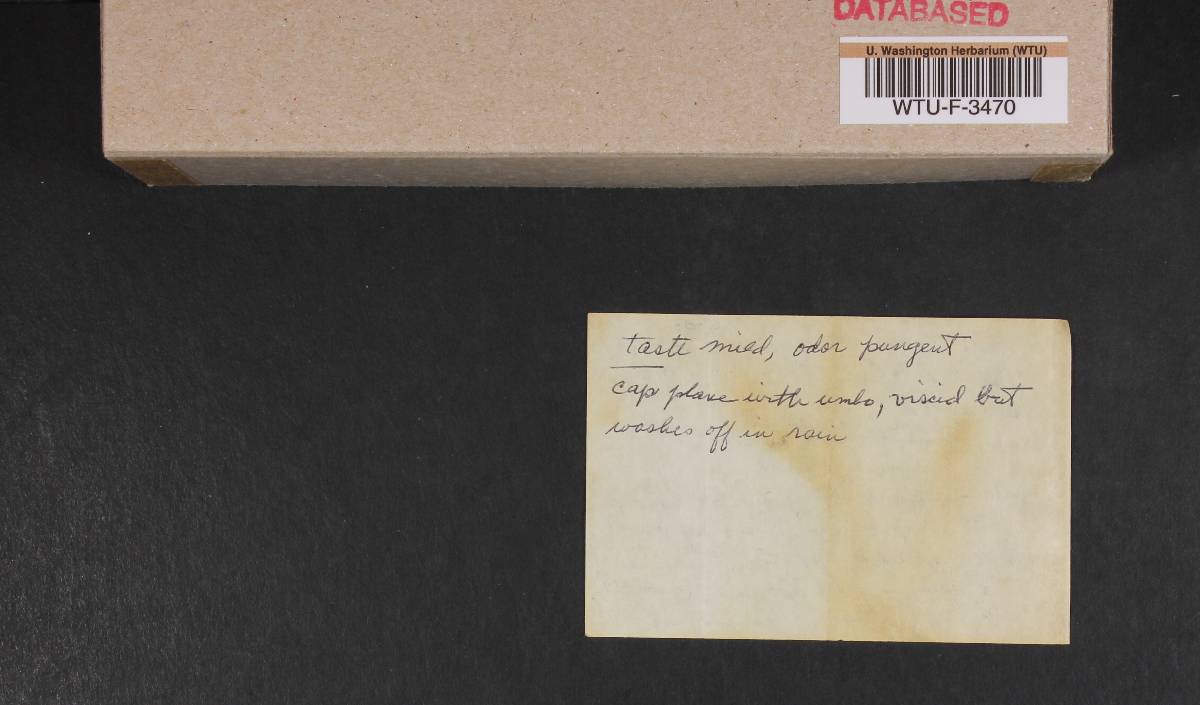 DATABASED
U. Washington Herbarium (WTU)
WTU-F-3470
taste mild, odor pungent
cap plane with umbo, viscid but
washes off in rain